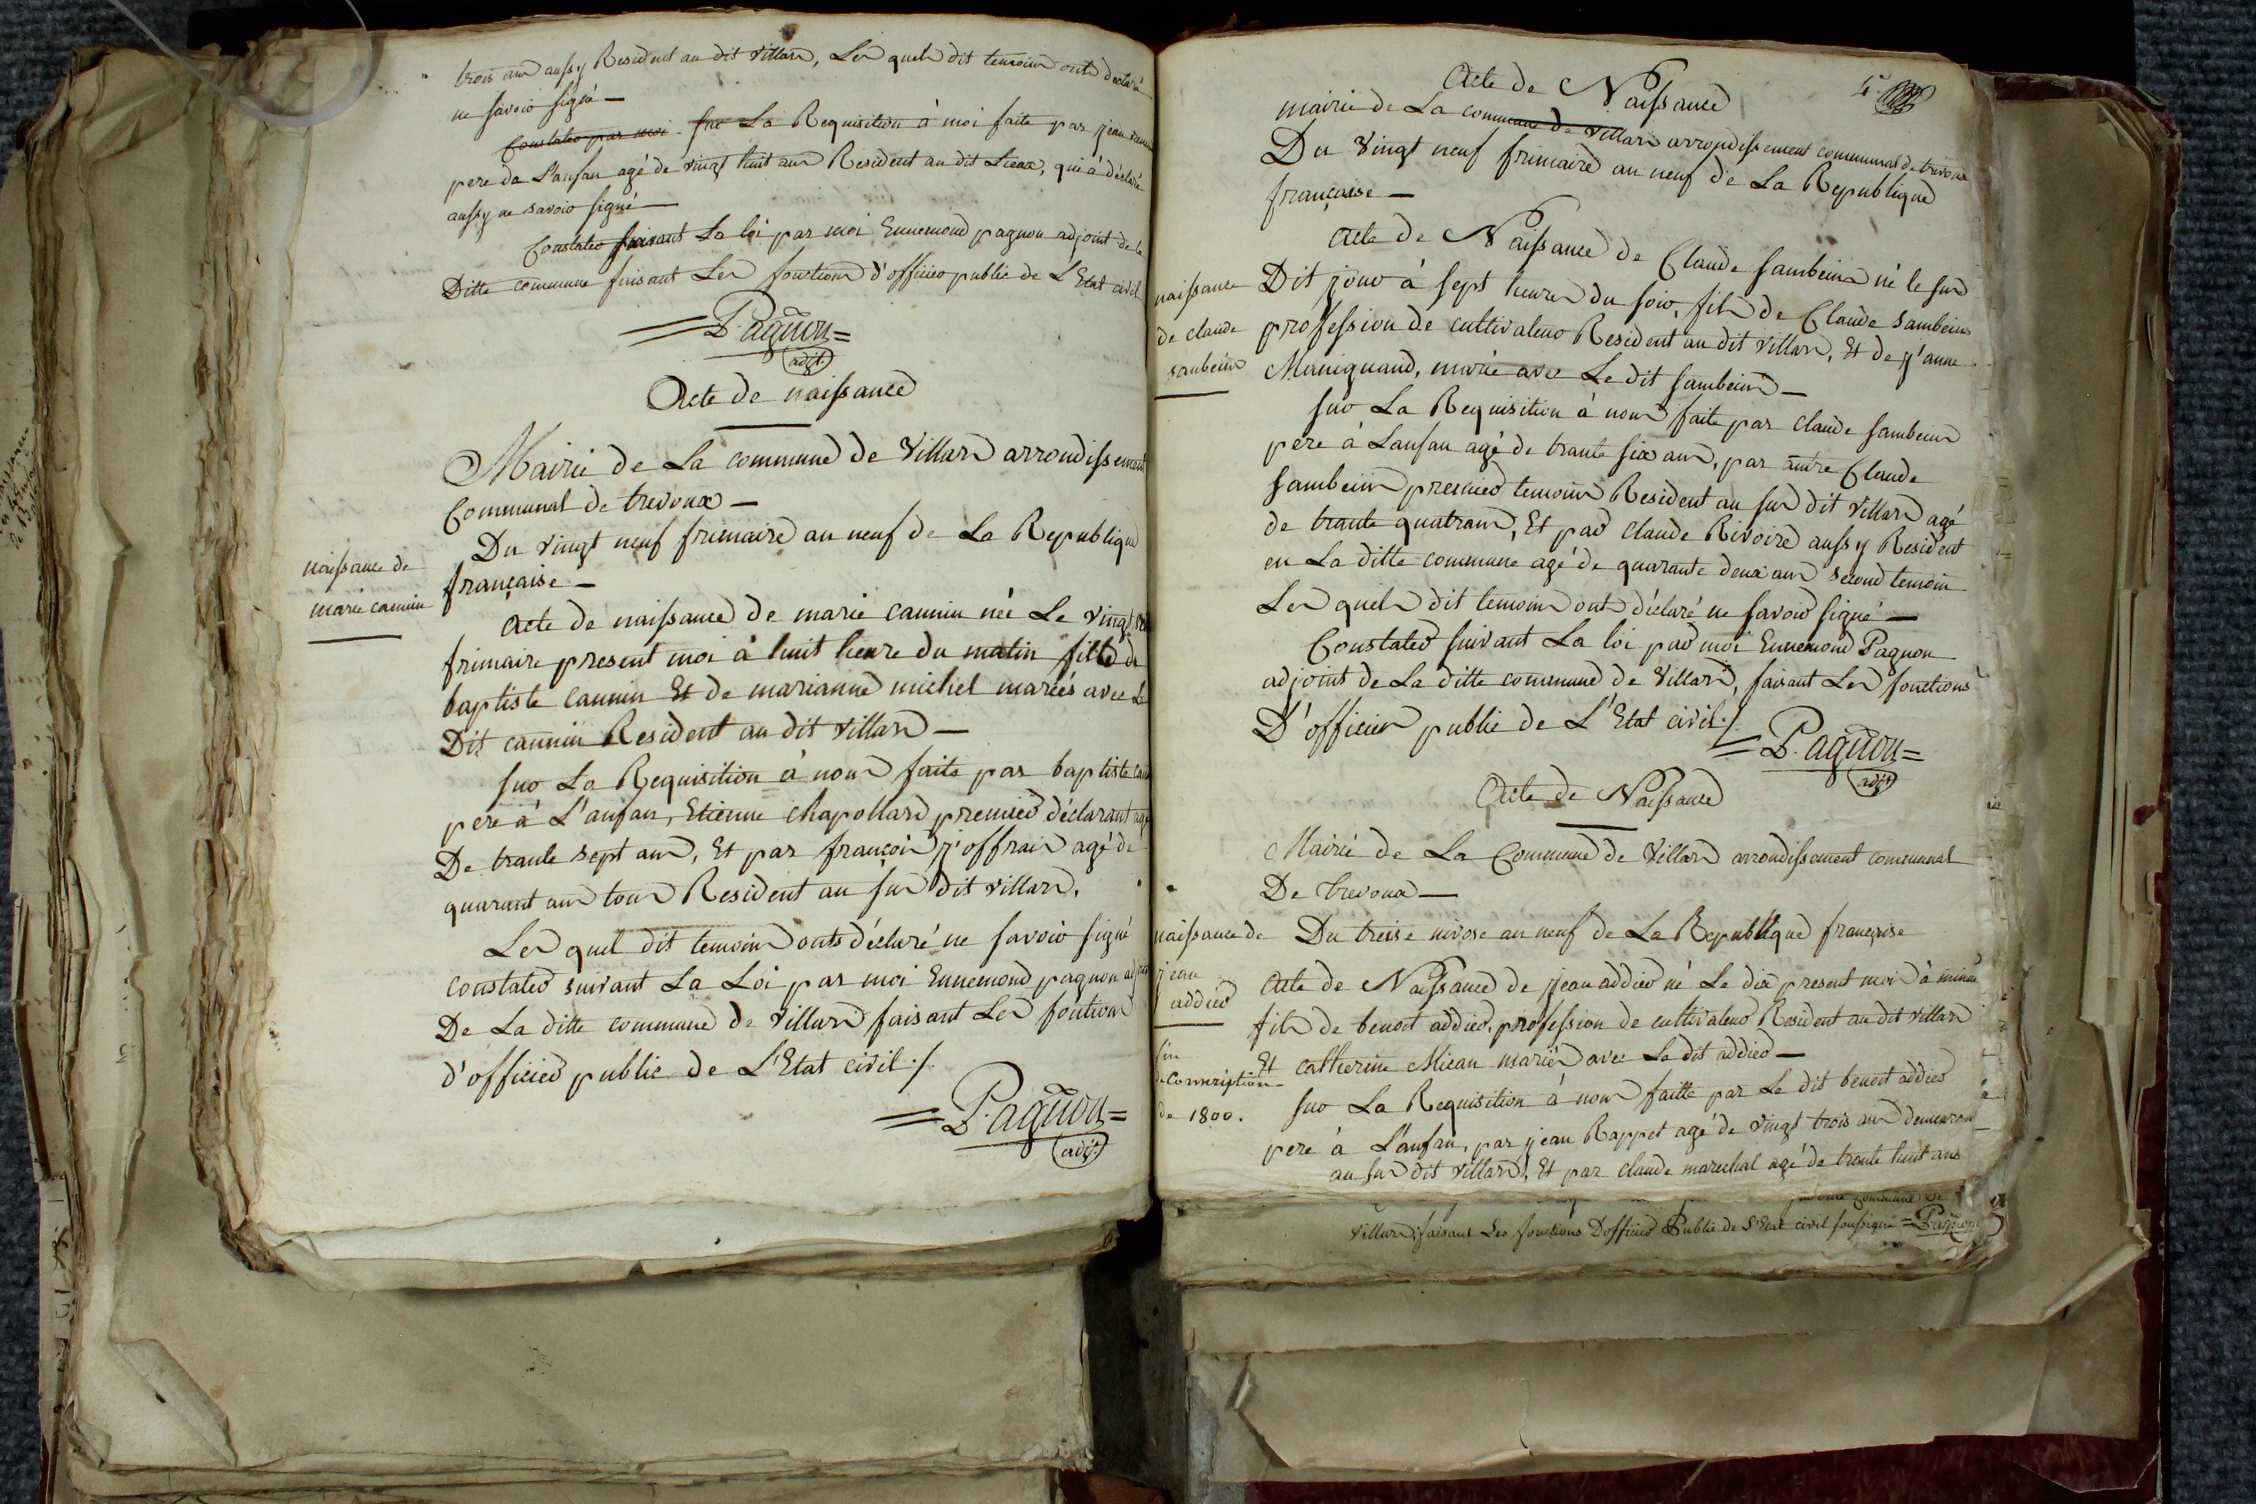 trois ans aussy Resident au dit Villars, Les quels dit temoins onts declaré
ne savoir signé —
Constatés par moi. sur La Requisition à moi faite par jean
pere de L'anfan agé de vingt huit ans Resident au dit Lieux, qui à déclaré
aussy ne savoir signé —
Constatés suivant La loi par moi Ennemond pagnon adjoint de la
Ditte commune faisant Les fonctions d'officier public de L'Etat civil
= P. agnon =
adjt.
Acte de naissance
Mairie de La commune de Villars arrondissement
Communal de trevoux —
Du vingt neuf frimaire an neuf de La Republique
française —
naissance de
marie cannin
Acte de naissance de marie cannin née Le vingt
frimaire present moi à huit heure du matin fille de
baptiste cannin Et de marianne michel mariés avec Le
Dit cannin Resident au dit Villars —
sur La Requisition à nous faite par baptiste
pere à L'anfan, Etienne Chapollard premier déclarant agé
De trante sept ans, Et par françois j'offrais agé de
quarant ans tous Resident au sus dit villars.
Les quel dit temoins onts déclaré ne savoir signé
constatés suivant La Loi par moi Ennemond pagnon
De La ditte commune de Villars faisant Les fontions
d'officier public de L'Etat civil ./.
= P. agnon =
adjt.
4e
Acte de Naissance
mairie de La commune de Villars arrondissement communal de trevoux
Du Vingt neuf frimaire an neuf de La Republique
française —
Acte de Naissance de Claude sambein né le sus
naissance
de claude
sanbein
Dit jour à sept heures du soir, fils de Claude sambein
profession de cultivateur Resident au dit villars, Et de j'anne
Maniguand, mariè avec Le dit sambein —
sur La Requisition à nous faite par claude sambein
pere à Lanfan agé de trante six ans, par autre Claude
sambein premier temoin Resident au sus dit villars agé
de trante quatrans, Et par Claude Rivoire aussy Resident
en La ditte commune agé de quarante deux ans second temoin
Les quels dit temoins onts déclaré ne savoir signé —
Constatés suivant La loi par moi Ennemond Pagnon
adjoint de La ditte commune de Villars, faisant Les fonctions
D'officier public de L'Etat civil ./.
= P. agnon =
adjt
Acte de Naissance
Mairie de La Commune de Villars arrondissement communal
De trevoux —
naissance de
jean
addier
Du treise nivose an neuf de La Republique française
Acte de Naissance de jean addier né Le dix present moi à
fils de benoit addier, profession de cultivateur Resident au dit villars
Et catherine Micau mariés avec Le dit addier —
fin
de conscription
de 1800.
sur La Requisition à nous faitte par Le dit benoit addier
pere à L'anfan, par jean Rappet agé de vingt trois ans demeurant
au sus dit villars, Et par claude marechal agé de trante huit ans
commune de
Villars, faisant Les fonctions D'officier Public de L'Etat civil soussigné = Pagnon